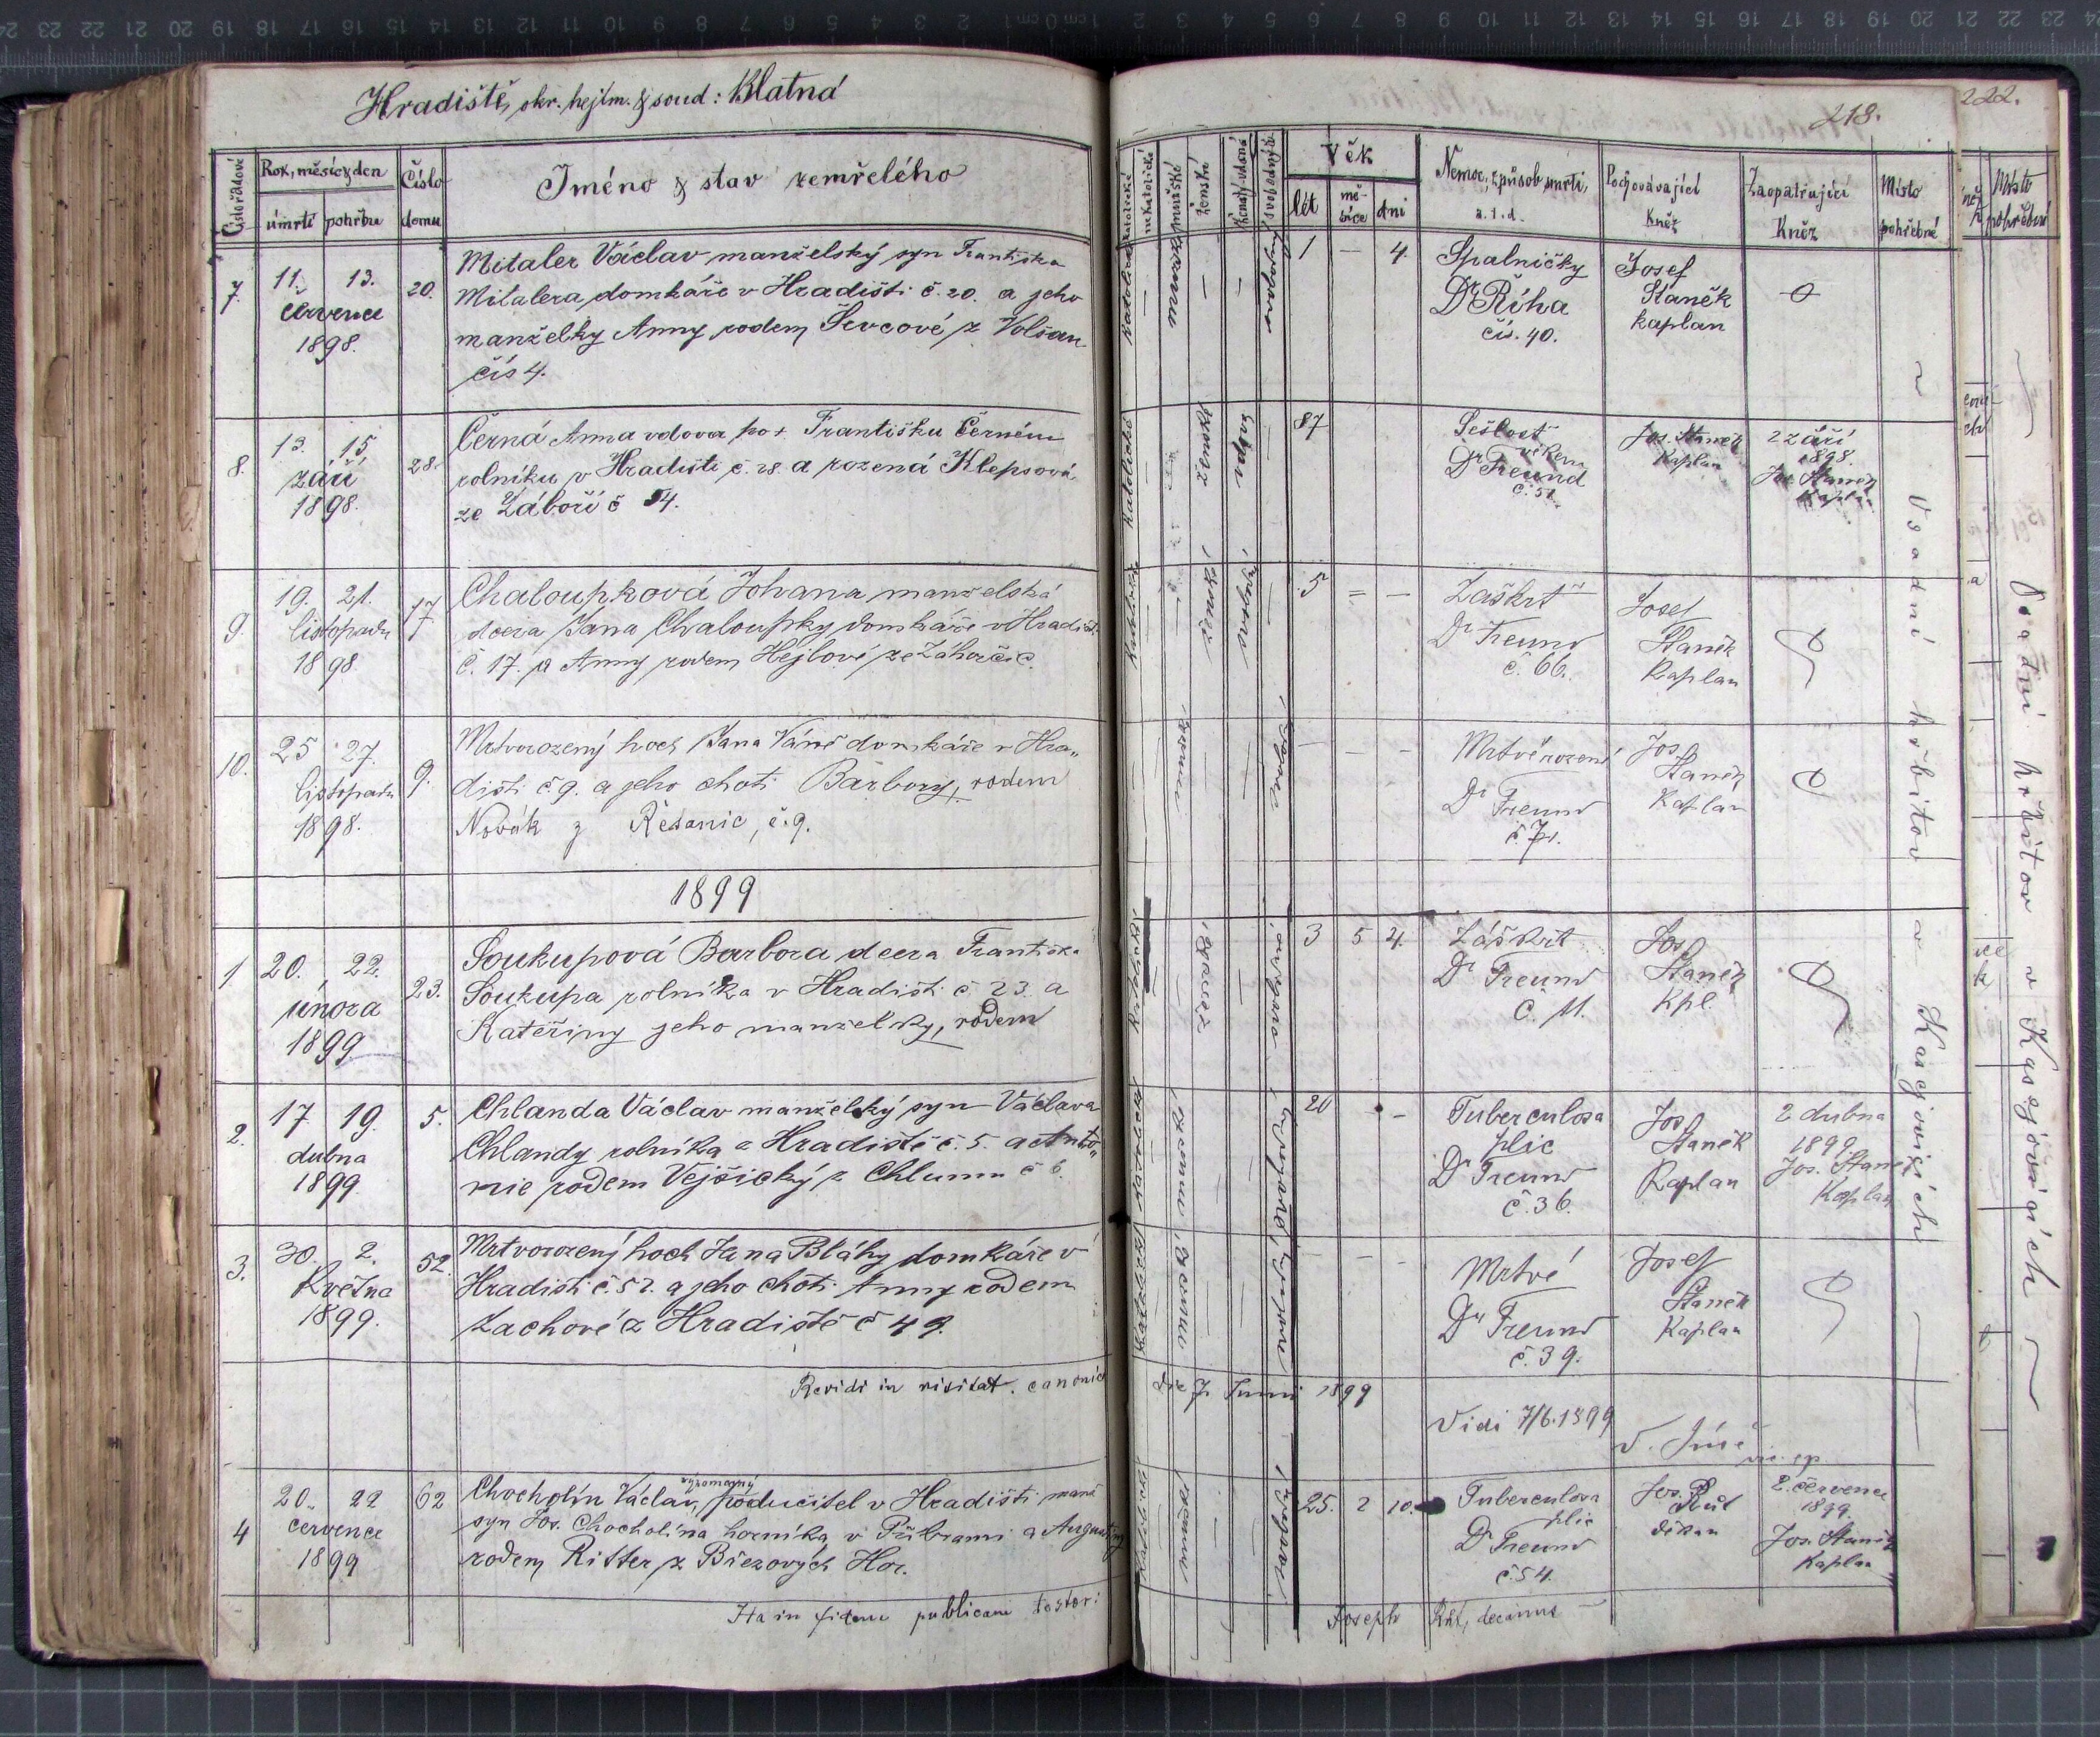 Hradiště, okr. hejtm. & soud: Blatná
Číslo řadové
Rok, měsíc & den
úmrtí pohřbu
Číslo
domu
Jméno & stav zemřelého
7.
11. 13.
července
1898.
20.
Mitaler Václav manželský syn Františka
Mitalera domkáře v Hradišti č. 20. a jeho
manželky Anny rodem Ševcové z Volšan
čís 4.
8.
13. 15.
září
1898.
28.
Černá Anna vdova po + Františku Černém
rolníku v Hradišti č. 28. a rozená Klepsová
ze Záboří č 54.
9.
19. 21.
listopadu
1898.
17
Chaloupková Johana manželská
dcera Jana Chaloupky domkáře v Hradiš.
č. 17. a Anny rodem Hejlové ze Záhorčic.
10.
25 27.
listopadu
1898.
9.
Mrtvorozený hoch Jana Váně domkáře v Hra„
dišti č 9. a jeho choti Barbory, rodem
Novák z Ředanic, č. 9.
1899
1
20. 22.
února
1899
23.
Soukupová Barbora dcera Františka
Soukupa rolníka v Hradišti č 23. a
Kateřiny jeho manželky, rodem
2.
17 19.
dubna
1899
5.
Chlanda Václav manželský syn Václava
Chlandy rolníka z Hradiště č. 5. a Anto„
nie rodem Vejšický z Chlumu č 6.
3.
30. 2.
Května
1899.
52.
Mrtvorozený hoch Jana Bláhy domkáře v
Hradišti č. 52. a jeho choti Anny rodem
Zachové z Hradiště č 49.
Revidi in visitat. canonica
4
20. 22
července
1899
62
výpomocný
Chocholín Václav, podučitel v Hradišti manž
syn Jos. Chocholína horníka v Příbrami a Augustiny
rodem Ritter z Březových Hor.
Ita in fidem publicam testor:
218.
katolické
nekatolické
mužské
ženské
ženatý, vdaná
svobodný
Věk
lét
mě-
síce
dní
Nemoc, způsob smrti,
a.t.d.
Pochovávající
Kněz
Zaopatřující
Kněz
Místo
pohřební
1 — 4.
Spalničky
Dr Říha
čís. 40.
Josef
Staněk
kaplan
87
Sešlost
věkem
Dr Freund
č. 51.
Jos. Staněk
kaplan
2 září
1898.
Jos. Staněk
kaplan
5 = —
Záškrt
Dr Freund
č. 66.
Josef
Staněk
Kaplan
— — -
Mrtvě rozený
Dr Freund
č. 71.
Jos.
Staněk
Kaplan
3 5 4.
Záškrt
Dr Freund
č. 11.
Jos
Staněk
Kpl.
20
Tuberculosa
plic
Dr Freund
č. 36.
Jos
Staněk
Kaplan
2 dubna
1899
Jos. Staněk
Kaplan
Mrtvé
Dr Freund
č. 39.
Josef
Staněk
Kaplan
die 7. Junii 1899
Vidi 7/6.1899
25. 2 10.
Tuberculosa
plic
Dr Freund
č. 54.
Jos. Rŭt
děkan
2. července
1899.
Jos. Staněk
Kaplan
Joseph Růt, decanus
V sadní hřbitov v Kasejovicích
222.
Místo
pohřební
Osadní hřbitov v Kasejovicích